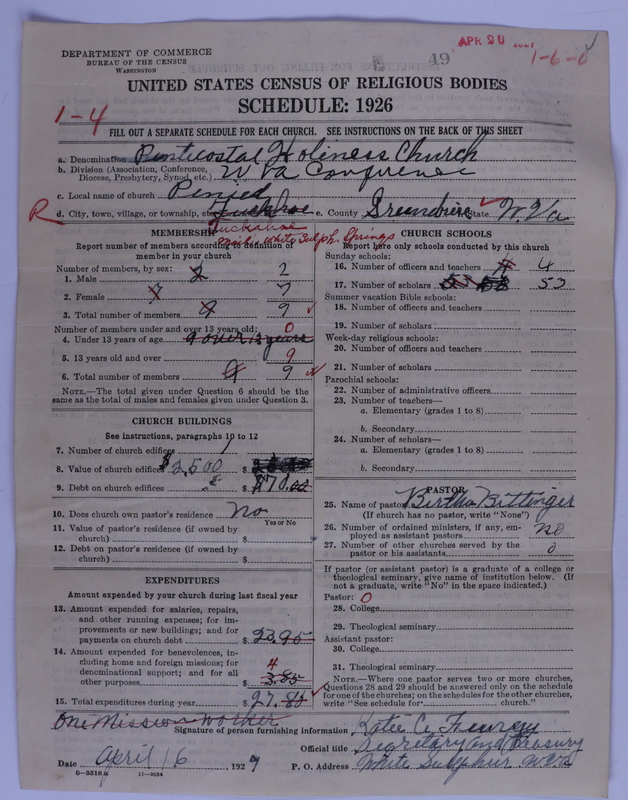 APR 26 1927
49
1-6-0
DEPARTMENT OF COMMERCE
BUREAU OF THE CENSUS
WASHINGTON
UNITED STATES CENSUS OF RELIGIOUS BODIES
SCHEDULE: 1926
1-4
FILL OUT A SEPARATE SCHEDULE FOR EACH CHURCH. SEE INSTRUCTIONS ON THE BACK OF THIS SHEET
a. Denomination Penticostal Holiness Church
b. Division (Association, Conference, Diocese, Presbytery, Synod, etc.) W Va Conference
c. Local name of church Penied
R
d. City, town, village, or township, etc. Tuckahoe e. County Greenbrier State W. Va
Tuckahoe
White Sulph. Springs
MEMBERSHIP
Report number of members according to definition of member in your church
Number of members, by sex:
1. Male 2 2
2. Female 7 7
3. Total number of members 9 9
Number of members under and over 13 years old:
4. Under 13 years of age 9 over 13 years 0
5. 13 years old and over 9
6. Total number of members 9 9
NOTE.—The total given under Question 6 should be the same as the total of males and females given under Question 3.
CHURCH BUILDINGS
See instructions, paragraphs 10 to 12
7. Number of church edifices 1
8. Value of church edifices $2,500 $
9. Debt on church edifices $ 870.00
10. Does church own pastor's residence No
Yes or No
11. Value of pastor's residence (if owned by church) $
12. Debt on pastor's residence (if owned by church) $
EXPENDITURES
Amount expended by your church during last fiscal year
13. Amount expended for salaries, repairs, and other running expenses; for improvements or new buildings; and for payments on church debt $ 23.95
14. Amount expended for benevolences, including home and foreign missions; for denominational support; and for all other purposes $ 3.85 4
15. Total expenditures during year $ 27.80
CHURCH SCHOOLS
Report here only schools conducted by this church
Sunday schools:
16. Number of officers and teachers 4 4
17. Number of scholars 53 53
Summer vacation Bible schools:
18. Number of officers and teachers
19. Number of scholars
Week-day religious schools:
20. Number of officers and teachers
21. Number of scholars
Parochial schools:
22. Number of administrative officers
23. Number of teachers—
a. Elementary (grades 1 to 8)
b. Secondary
24. Number of scholars—
a. Elementary (grades 1 to 8)
b. Secondary
PASTOR
25. Name of pastor Birtha Bittinger
(If church has no pastor, write "None")
26. Number of ordained ministers, if any, employed as assistant pastors no
27. Number of other churches served by the pastor or his assistants 0
If pastor (or assistant pastor) is a graduate of a college or theological seminary, give name of institution below. (If not a graduate, write "No" in the space indicated.)
Pastor: 0
28. College
29. Theological seminary
Assistant pastor:
30. College
31. Theological seminary
NOTE.—Where one pastor serves two or more churches, Questions 28 and 29 should be answered only on the schedule for one of the churches; on the schedules for the other churches, write "See schedule for church."
One Mission Worker
Signature of person furnishing information Katie C.
Official title Secretary and Treasury
Date April 16, 1927 P. O. Address White Sulphur W Va
8-5518a 11-9054